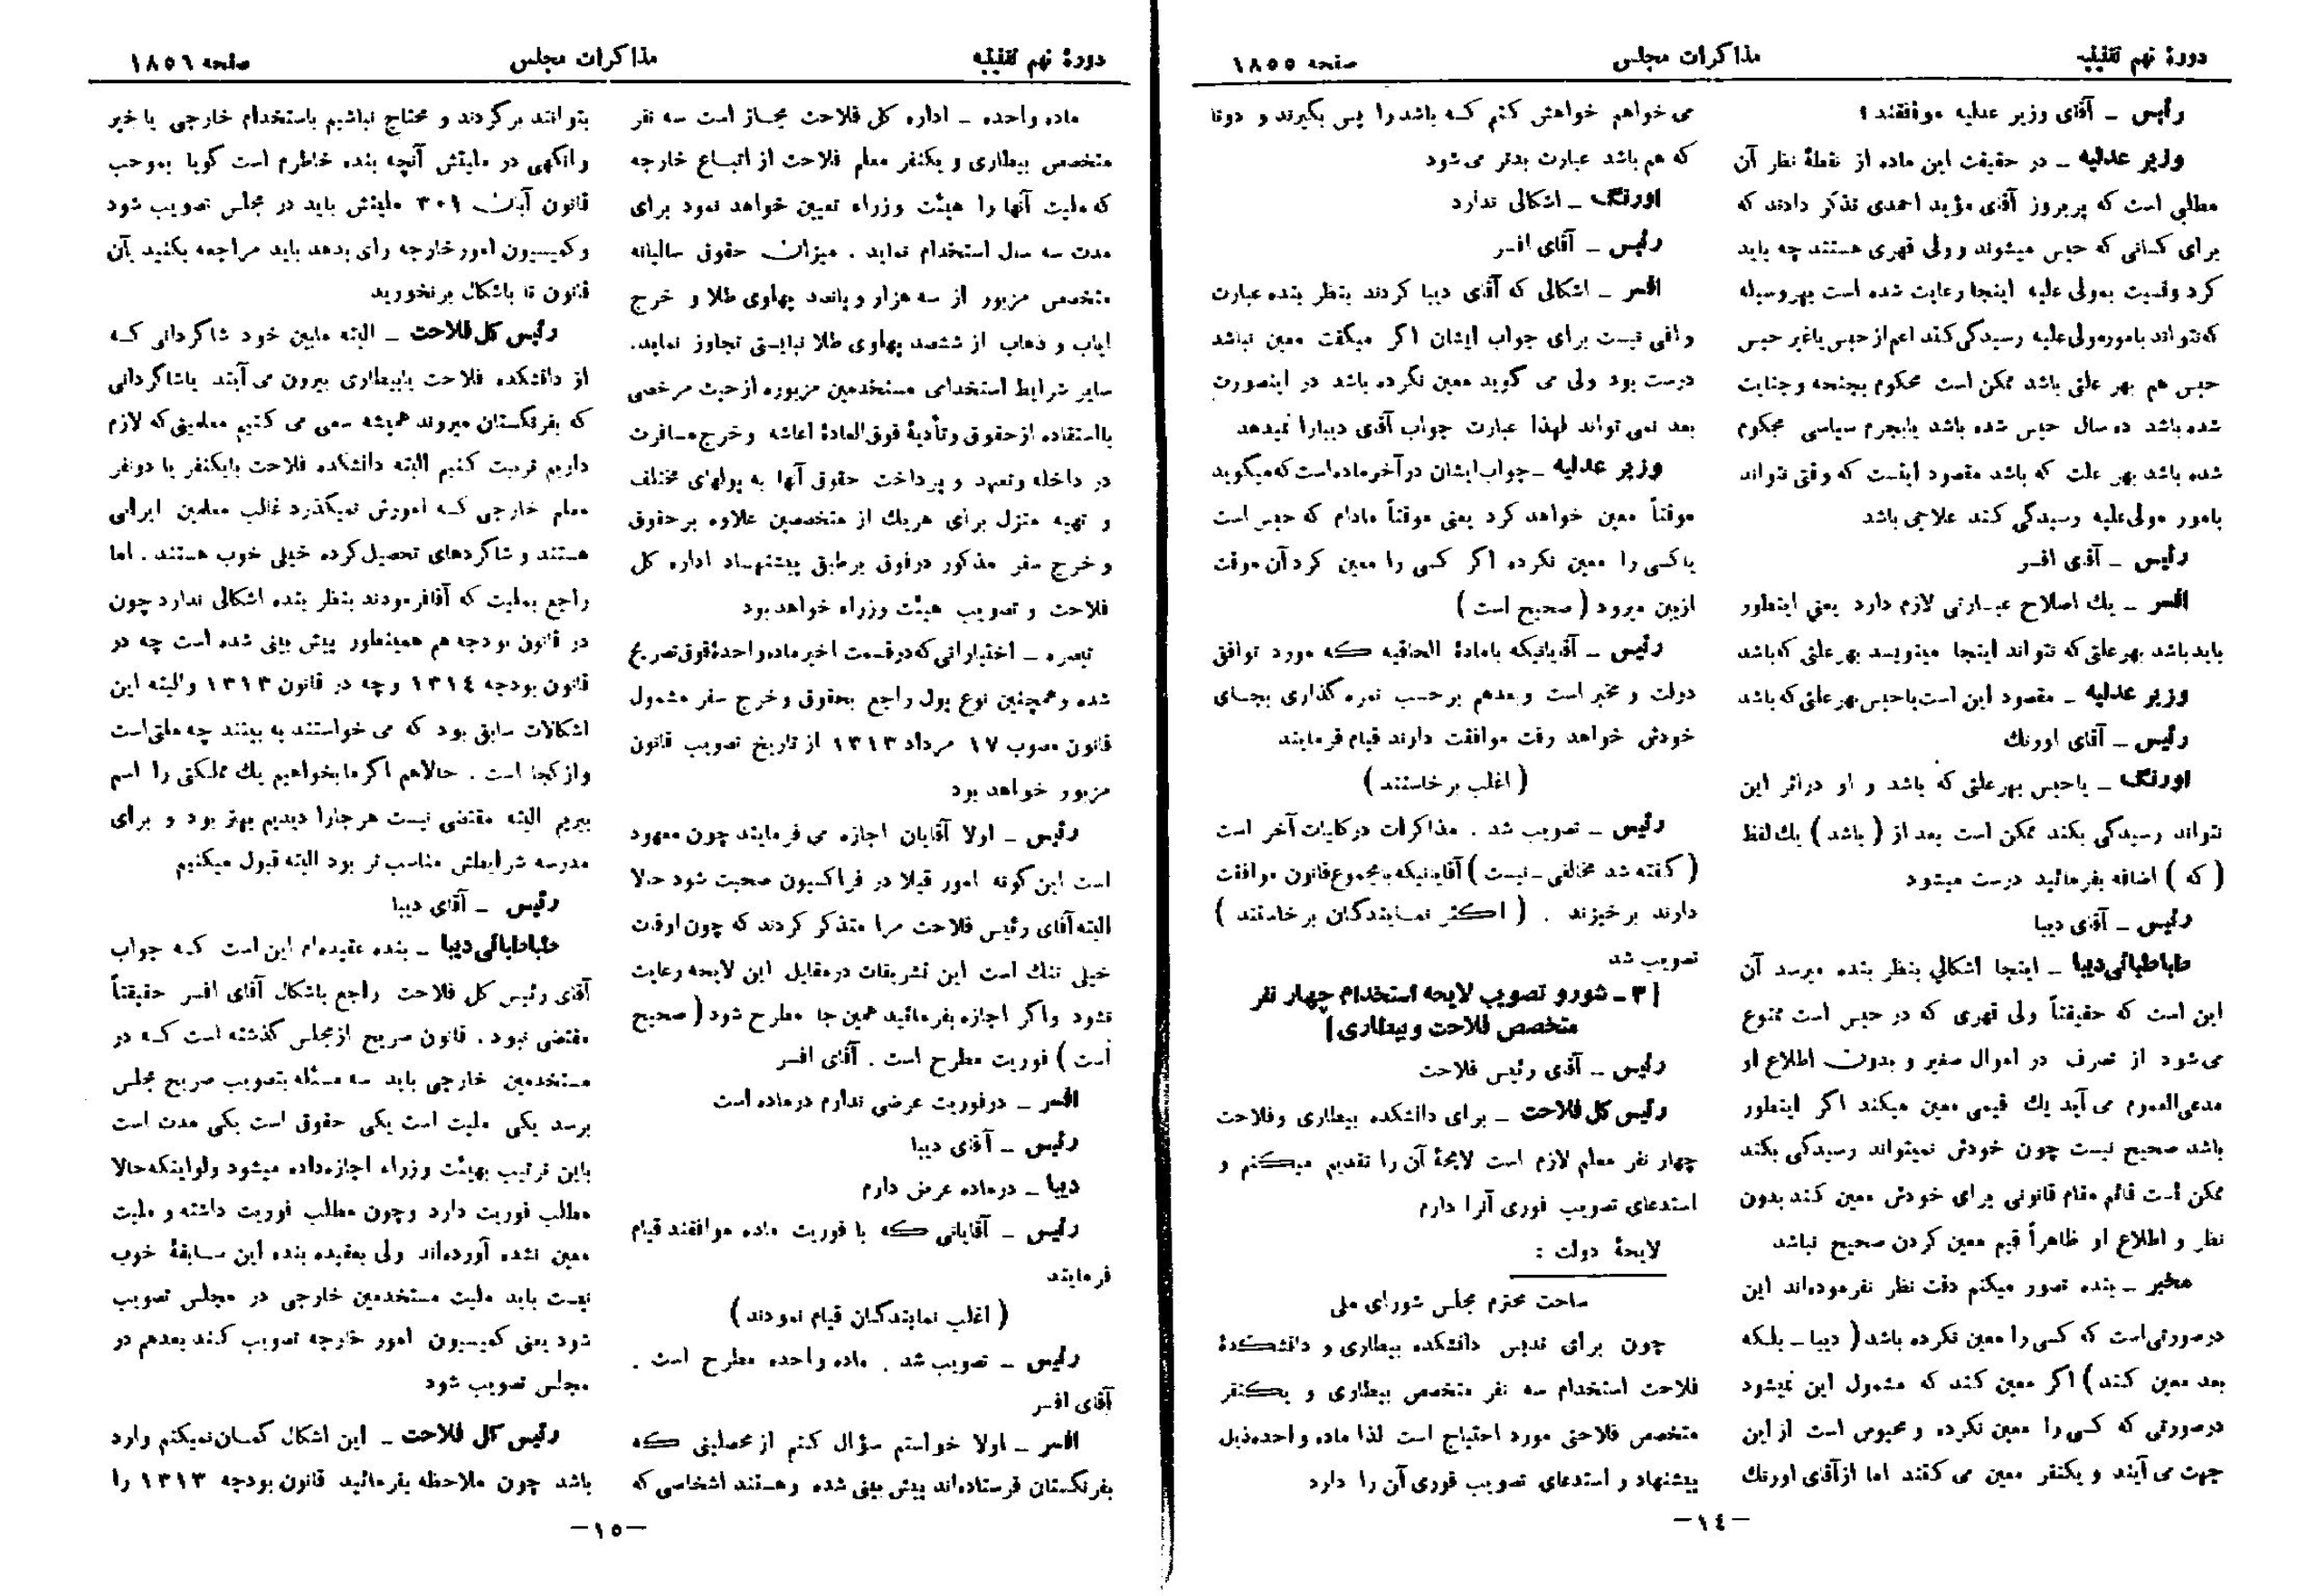 دورهٔ نهم تقنینیه
مذاکرات مجلس
صفحه ۱۸۵۵
رئیس ـ آقای وزیر عدلیه موافقند ؟
وزیر عدلیه ـ در حقیقت این ماده از نقطهٔ نظر آن
مطلبی است که پریروز آقای مؤید احمدی تذکر دادند که
برای کسانی که حبس میشوند و ولی قهری هستند چه باید
کرد ونسبت بمولی علیه اینجا رعایت شده است بهروسیله
که نتواند بامورمولی علیه رسیدگی کند اعم از حبس یاغیر حبس
حبس هم بهر علتی باشد ممکن است محکوم بجنحه و جنایت
شده باشد ده سال حبس شده باشد یابجرم سیاسی محکوم
شده باشد بهر علت که باشد مقصود اینست که وقتی نتواند
بامور مولی‌علیه رسیدگی کند علاجی باشد
رئیس ـ آقای افسر
افسر ـ یك اصلاح عبارتی لازم دارد یعنی اینطور
باید باشد بهر علتی که نتواند اینجا مینویسد بهر علتی که باشد
وزیر عدلیه ـ مقصود این است یا حبس بهر علتی که باشد
رئیس ـ آقای اورنك
اورنگ ـ یاحبس بهرعلتی که باشد و او دراثر این
نتواند رسیدگی بکند ممکن است بعد از ( باشد ) یك لفظ
( که ) اضافه بفرمائید درست میشود
رئیس ـ آقای دیبا
طباطبائی دیبا ـ اینجا اشکالی بنظر بنده میرسد آن
این است که حقیقتاً ولی قهری که در حبس است ممنوع
می‌شود از تصرف در اموال صغیر و بدون اطلاع او
مدعی‌العموم می آید یك قیمی معین میکند اگر اینطور
باشد صحیح نیست چون خودش نمیتواند رسیدگی بکند
ممکن است قائم مقام قانونی برای خودش معین کند بدون
نظر و اطلاع او ظاهراً قیم معین کردن صحیح نباشد
مخبر ـ بنده تصور میکنم دقت نظر نفرموده‌اند این
درصورتی‌است که کسی را معین نکرده باشد ( دیبا ـ بلکه
بعد معین کند ) اگر معین کند که مشمول این نمیشود
درصورتی که کسی را معین نکرده و محبوس است از این
جهت می آیند و یکنفر معین می کنند اما از آقای اورنك
می خواهم خواهش کنم که باشد را پس بگیرند و دوتا
که هم باشد عبارت بدتر می شود
اورنگ ـ اشکالی ندارد
رئیس ـ آقای افسر
افسر ـ اشکالی که آقای دیبا کردند بنظر بنده عبارت
وافی نیست برای جواب ایشان اگر میگفت معین نباشد
درست بود ولی می گوید معین نگرده باشد در اینصورت
بعد نمی تواند لهذا عبارت جواب آقای دیبارا نمیدهد
وزیر عدلیه ـ جواب ایشان در آخر ماده است که میگوید
موقتاً معین خواهد کرد یعنی موقتاً مادام که حبس است
یا کسی را معین نکرده اگر کسی را معین کرد آن موقت
ازبین میرود ( صحیح است )
رئیس ـ آقایانیکه بامادهٔ الحاقیه که مورد توافق
دولت و مخبر است و بعدهم برحسب نمره گذاری بجای
خودش خواهد رفت موافقت دارند قیام فرمایند
( اغلب برخاستند )
رئیس ـ تصویب شد . مذاکرات در کلیات آخر است
( گفته شد مخالفی ـ نیست ) آقایانیکه با مجموع قانون موافقت
دارند برخیزند . ( اکثر نمایندگان برخاستند )
تصویب شد
[ ۳ ـ شور و تصویب لایحه استخدام چهار نفر
متخصص فلاحت و بیطاری ]
رئیس ـ آقای رئیس فلاحت
رئیس کل فلاحت ـ برای دانشکده بیطاری وفلاحت
چهار نفر معلم لازم است لایحهٔ آن را تقدیم میکنم و
استدعای تصویب فوری آنرا دارم
لایحهٔ دولت :
ساحت محترم مجلس شورای ملی
چون برای تدریس دانشکده بیطاری و دانشکدهٔ
فلاحت استخدام سه نفر متخصص بیطاری و یکنفر
متخصص فلاحتی مورد احتیاج است لذا ماده واحده ذیل
پیشنهاد و استدعای تصویب فوری آن را دارد
ـ۱٤ـ
دورهٔ نهم تقنینیه
مذاکرات مجلس
صفحه ۱۸۵٦
ماده واحده ـ اداره کل فلاحت مجاز است سه نفر
متخصص بیطاری و یکنفر معلم فلاحت از اتباع خارجه
که ملیت آنها را هیئت وزراء تعیین خواهد نمود برای
مدت سه سال استخدام نماید . میزان حقوق سالیانه
متخصص مزبور از سه هزار و پانصد پهلوی طلا و خرج
ایاب و ذهاب از ششصد پهلوی طلا نبایستی تجاوز نماید.
سایر شرایط استخدامی مستخدمین مزبوره از حیث مرخصی
بااستفاده از حقوق وتأدیهٔ فوق‌العادهٔ اعاشه وخرج مسافرت
در داخله وتعهد و پرداخت حقوق آنها به پولهای مختلف
و تهیه منزل برای هریك از متخصصین علاوه برحقوق
و خرج سفر مذکور درفوق برطبق پیشنهاد اداره کل
فلاحت و تصویب هیئت وزراء خواهد بود
تبصره ـ اختیاراتی که در قسمت اخیر ماده واحدهٔ فوق تصریح
شده و همچنین نوع پول راجع بحقوق و خرج سفر مشمول
قانون مصوب ۱۷ مرداد ۱۳۱۳ از تاریخ تصویب قانون
مزبور خواهد بود
رئیس ـ اولا آقایان اجازه می فرمایند چون معهود
است این گونه امور قبلا در فراکسیون صحبت شود حالا
البته آقای رئیس فلاحت مرا متذکر کردند که چون اوقات
خیلی تنك است این تشریفات درمقابل این لایحه رعایت
نشود واگر اجازه بفرمائید همین جا مطرح شود ( صحیح
است ) فوریت مطرح است . آقای افسر
افسر ـ درفوریت عرضی ندارم درماده است
رئیس ـ آقای دیبا
دیبا ـ درماده عرض دارم
رئیس ـ آقایانی که با فوریت ماده موافقند قیام
فرمایند
( اغلب نمایندگان قیام نمودند )
رئیس ـ تصویب شد . ماده واحده مطرح است .
آقای افسر
افسر ـ اولا خواستم سؤال کنم از محصلینی که
بفرنگستان فرستاده‌اند پیش بینی شده و هستند اشخاصی که
بتوانند برگردند و محتاج نباشیم باستخدام خارجی یا خیر
وانگهی در ملیتش آنچه بنده خاطرم است گویا بموجب
قانون آبان ۳۰۱ ملیتش باید در مجلس تصویب شود
وکمیسیون امور خارجه رای بدهد باید مراجعه بکنید بآن
قانون تا باشکال برنخورید
رئیس کل فلاحت ـ البته مابین خود شاگردانی که
از دانشکده فلاحت یابیطاری بیرون می آیند یاشاگردانی
که بفرنگستان میروند همیشه سعی می کنیم معلمینی که لازم
داریم تربیت کنیم البته دانشکده فلاحت بایکنفر یا دونفر
معلم خارجی که امورش نمیگذرد غالب معلمین ایرانی
هستند و شاگردهای تحصیل کرده خیلی خوب هستند . اما
راجع بملیت که آقافرمودند بنظر بنده اشکالی ندارد چون
در قانون بودجه هم همینطور پیش بینی شده است چه در
قانون بودجه ۱۳۱٤ وچه در قانون ۱۳۱۳ والبته این
اشکالات سابق بود که می خواستند به بینند چه ملتی است
واز کجا است . حالاهم اگر ما بخواهیم یك مملکتی را اسم
ببریم البته مقتضی نیست هرجارا دیدیم بهتر بود و برای
مدرسه شرایطش مناسب تر بود البته قبول میکنیم
رئیس ـ آقای دیبا
طباطبائی دیبا ـ بنده عقیده‌ام این است که جواب
آقای رئیس کل فلاحت راجع باشکال آقای افسر حقیقتاً
مقتضی نبود . قانون صریح از مجلس گذشته است که در
مستخدمین خارجی باید سه مسئله بتصویب صریح مجلس
برسد یکی ملیت است یکی حقوق است یکی مدت است
باین ترتیب بهیئت وزراء اجازه داده میشود ولو اینکه حالا
مطلب فوریت دارد وچون مطلب فوریت داشته و ملیت
معین نشده آورده‌اند ولی بعقیده بنده این سابقهٔ خوب
نیست باید ملیت مستخدمین خارجی در مجلس تصویب
شود یعنی کمیسیون امور خارجه تصویب کند بعدهم در
مجلس تصویب شود
رئیس کل فلاحت ـ این اشکال گمان نمیکنم وارد
باشد چون ملاحظه بفرمائید قانون بودجه ۱۳۱۳ را
ـ۱۵ـ